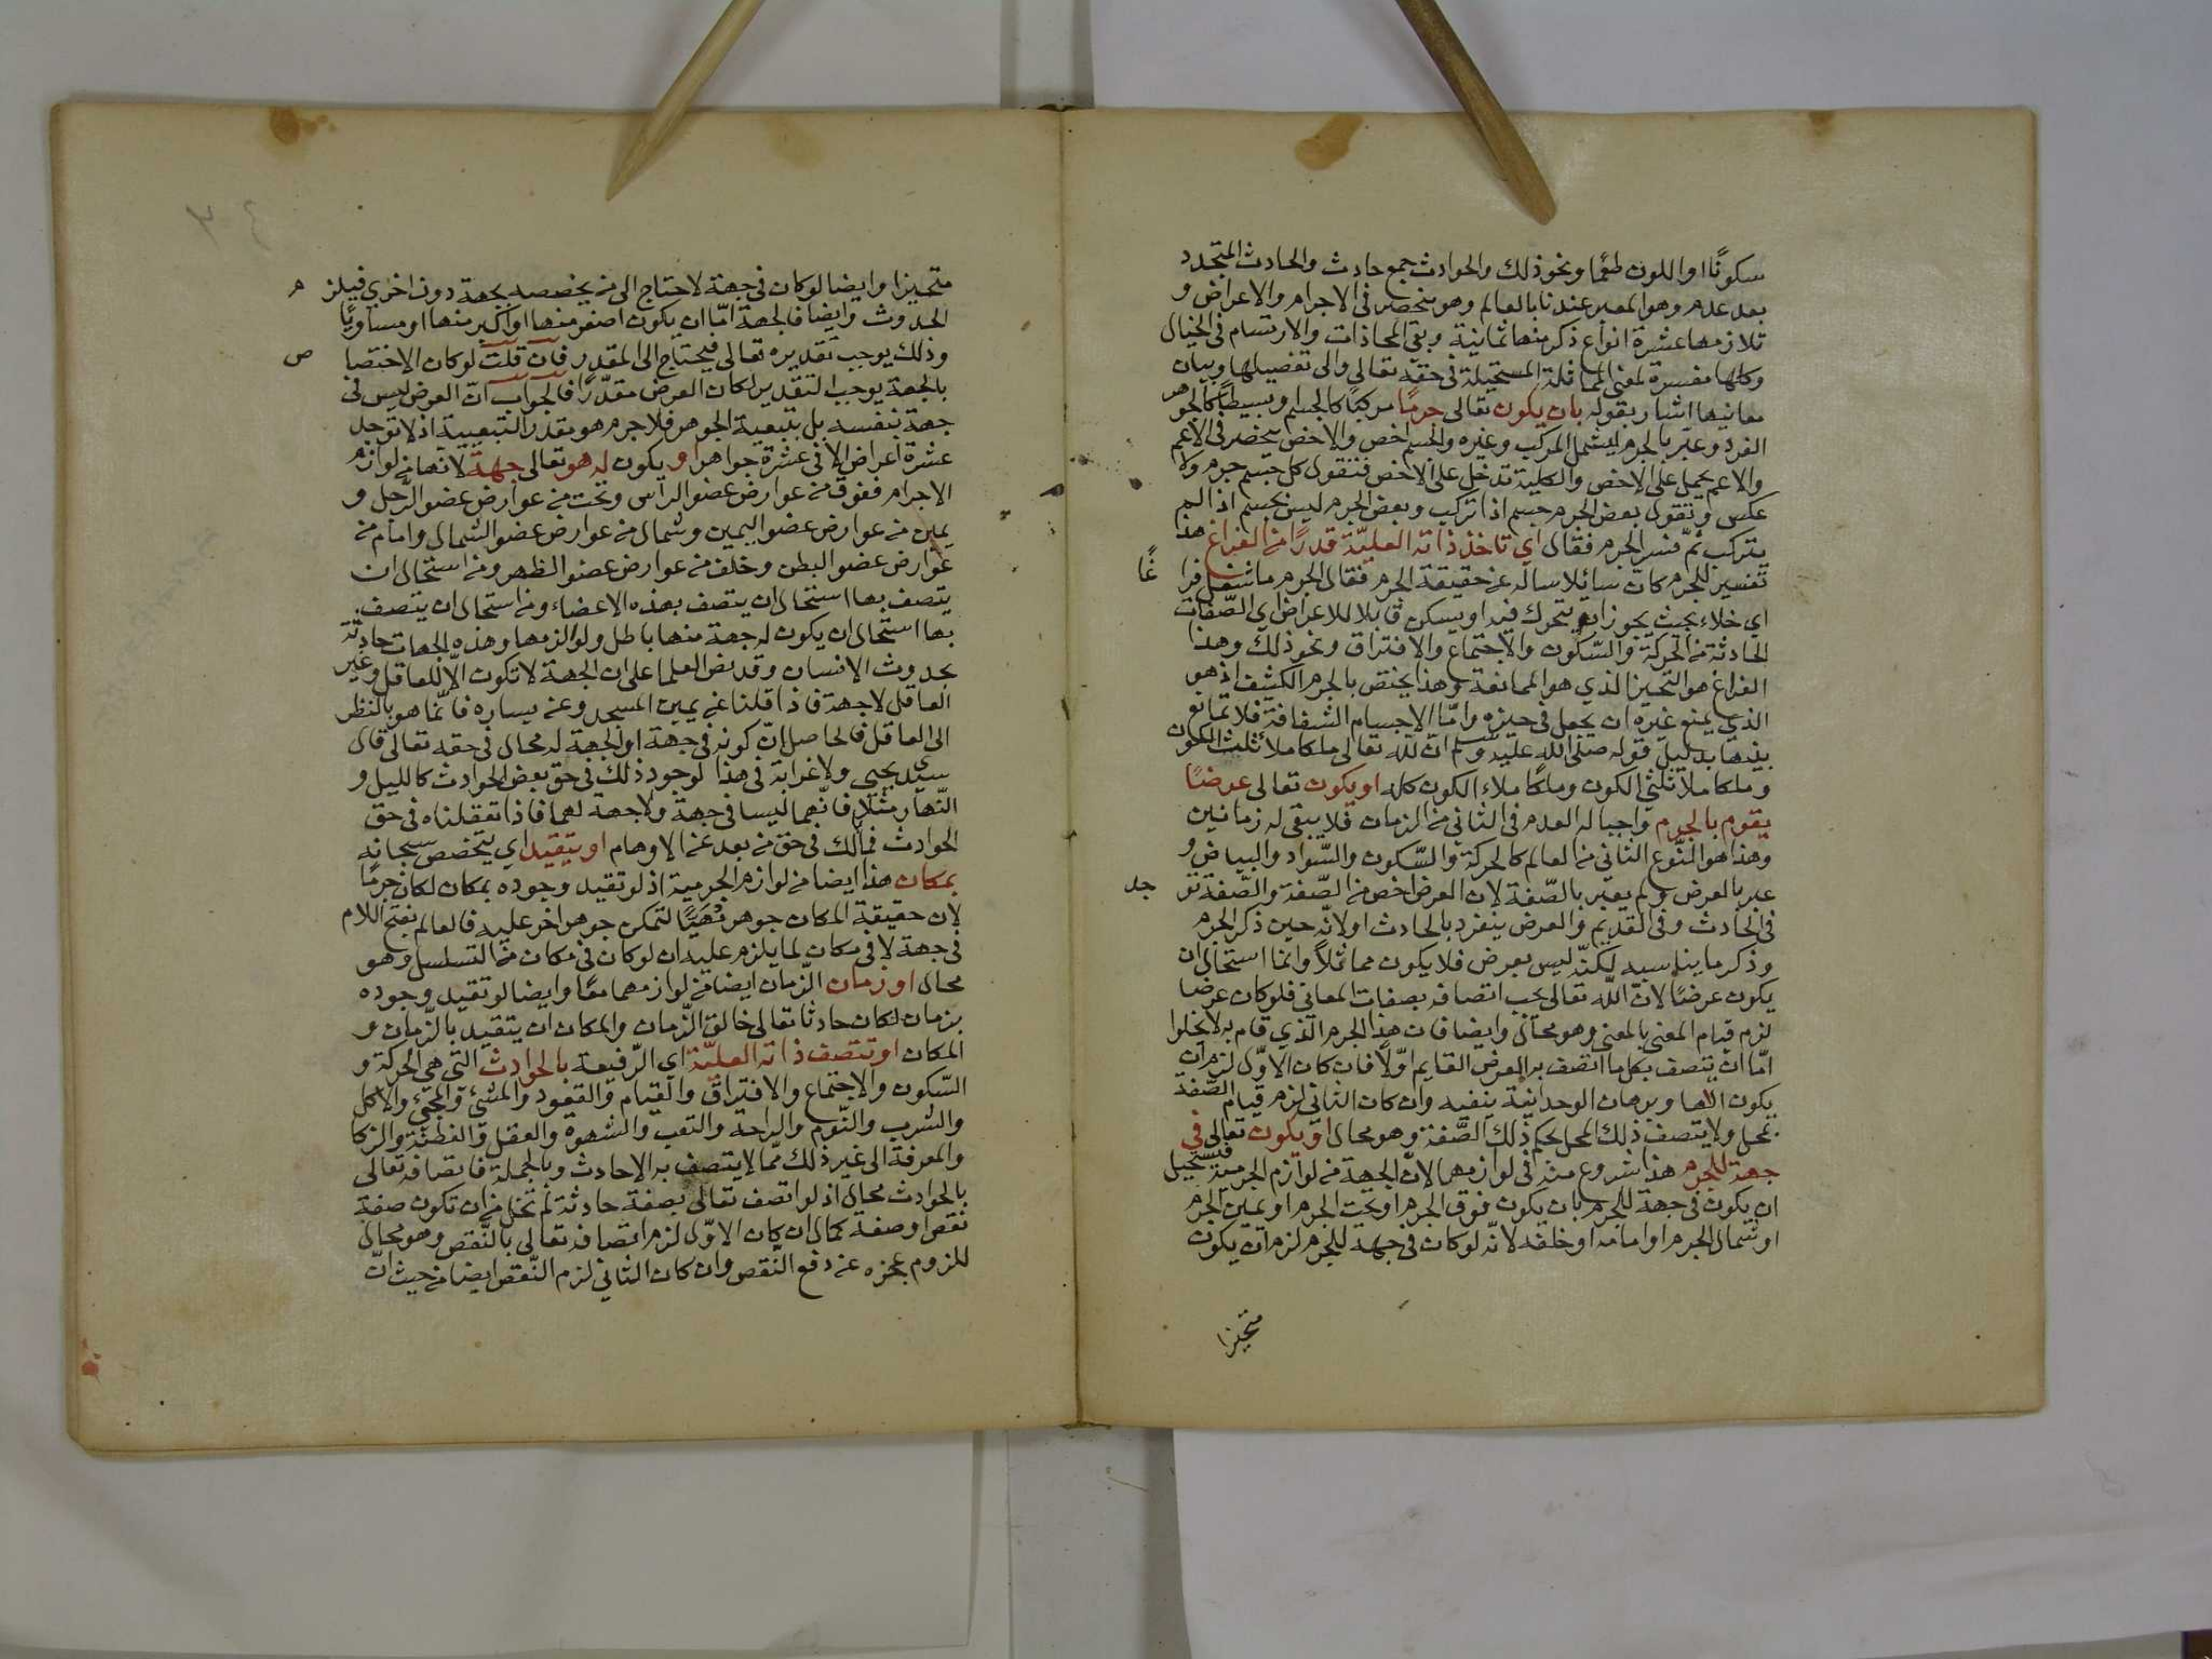 سكونًا او اللون طعمًا ونحو ذلك والحوادث جمع حادث والحادث المتجدد
بعد عدم وهو المعبر عندنا بالعالم وهو منحصر فى الاجرام والاعراض و
تلازمها عشرة انواع ذكر منها ثمانية وبقى المحاذات والارتسام فى الخيال
وكلها مفسرة لمعنى المماثلة المستحيلة فى حقه تعالى والى تفصيلها وبيان
معانيها اشار بقوله بان يكون تعالى جرمًا مركبًا كالجسم او بسيطًا كالجوهر
الفرد وعبّر بالجرم ليشمل المركب وغيره والجسم اخص والاخص ينحصر فى الاعم
والاعم يحمل على الاخص والكلية تدخل على الاخص فتقول كل جسم جرم ولا
عكس وتقول بعض الجرم جسم اذا تركب وبعض الجرم ليس بجسم اذا لم
يتركب ثمّ فسر الجرم فقال اي تاخذ ذاته العليّة قدرًا من الفراغ هذا
تفسير للجرم كان سائلا ساله عن حقيقة الجرم فقال الجرم ما شغل فرا
غًا
اي خلاء بحيث يجوز ان يتحرك فيه او يسكن قابلا للاعراض اي الصّفات
الحادثة من الحركة والسّكون والاجتماع والافتراق ونحو ذلك وهذا
الفراغ هو التحيز الذي هو الممانعة وهذا يختص بالجرم الكثيف اذ هو
الذي يمنع غيره ان يجعل فى حيزه وامّا الاجسام الشفافة فلا تمانع
بينها بدليل قوله صلى الله عليه وسلم انّ لله تعالى ملكا ملأ ثلث الكون
وملكا ملأ ثلثي الكون وملكًا ملاء الكون كله او يكون تعالى عرضًا
يقوم بالجرم واجبا له العدم فى الثانى من الزمان فلا يبقى له زمانين
وهذا هو النّوع الثانى من العالم كالحركة والسّكون والسّواد والبياض و
عبر بالعرض ولم يعبر بالصّفة لان العرض اخص من الصّفة والصّفة تو
جد
فى الحادث وفى القديم والعرض ينفرد بالحادث اولانّه حين ذكر الجرم
وذكر ما يناسبه لكنّه ليس بعرض فلا يكون مماثلاً وانما استحال ان
يكون عرضًا لانّ اللّه تعالى يجب اتصافه بصفات المعانى فلو كان عرضا
لزم قيام المعنى بالمعنى وهو محال وايضا فان هذا الجرم الذي قام به لا يخلوا
امّا ان يتصف بكل ما اتصف به العرض القايم اوّلاً فان كان الاوّل لزم ان
يكون الٰها وبرهان الوحدانية ينفيه وان كان الثانى لزم قيام الصّفة
بمحل ولا يتصف ذلك المحل بحكم ذلك الصّفة وهو محال او يكون تعالى في
جهة للجرم هذا شروع منه فى لوازمهما لانّ الجهة من لوازم الجرمية فيستحيل
ان يكون فى جهة للجرم بان يكون فوق الجرم او تحت الجرم او يمين الجرم
او شمال الجرم او امامه او خلفه لانّه لو كان فى جهة للجرم لزم ان يكون
متحيزا
٣٤
متحيزا وايضا لو كان فى جهة لاحتاج الى من يخصصه بجهة دون اخري فيلز
م
الحدوث وايضا فالجهة امّا ان يكون اصغر منها او اكبر منها او مساويًا
وذلك يوجب تقديره تعالى فيحتاج الى المقدر فان قلت لو كان الاختصا
ص
بالجهة يوجب التقدير لكان العرض مقدّرًا فالجواب انّ العرض ليس فى
جهة بنفسه بل بتبعية الجوهر فلا جرم هو مقدر التبعيية اذ لا توجد
عشرة اعراض الا فى عشرة جواهر او يكون له هو تعالى جهة لانها من لوازم
الاجرام ففوق من عوارض عضو الراس وتحت من عوارض عضو الرّجل و
يمين من عوارض عضو اليمين وشمال من عوارض عضو الشمال وامام من
عوارض عضو البطن وخلف من عوارض عضو الظهر ومن استحال ان
يتصف بها استحال ان يتصف بهذه الاعضاء ومن استحال ان يتصف
بها استحال ان يكون له جهة منها باطل ولوالزمها وهذه الجهات حادثة
بحدوث الانسان وقد نص العلما على ان الجهة لا تكون الّا للعاقل وغير
العاقل لا جهة فاذا قلنا عن يمين المسجد وعن يساره فانّما هو بالنظر
الى العاقل فالحاصل انّ كونه فى جهة او الجهة له محال فى حقه تعالى قال
سيدي يحيي ولا غرابة فى هذا لوجود ذلك فى حق بعض الحوادث كالليل و
النّهار مثلا فانّهما ليسا فى جهة ولا جهة لهما فاذا تعقلناه فى حق
الحوادث فمالك فى حق من بعد عن الاوهام او يتقيد اي يتخصص سبحانه
بمكان هذا ايضا من لوازم الجرمية اذ لو تقيد وجوده بمكان لكان جرمًا
لان حقيقة المكان جوهر تهيًّا لتمكن جوهر اخر عليه فالعالم بفتح اللام
فى جهة لا فى مكان لما يلزم عليه ان لو كان فى مكان من التسلسل وهو
محال او زمان الزّمان ايضا من لوازمهما معًا وايضا لو تقيد وجوده
بزمان لكان حادثا تعالى خالق الزّمان والمكان ان يتقيد بالزّمان و
المكان او تتصف ذاته العليّة اي الرّفيعة بالحوادث التى هي الحركة و
السّكون والاجتماع والافتراق والقيام والقعود والمشئ والمجئ والاكل
والشرب والنّوم والراحة والتعب والشهوة والعقل والفطنة والزكا
والمعرفة الى غير ذلك ممّا لا يتصف به الا حادث وبالجملة فاتصافه تعالى
بالحوادث محال اذ لو اتصف تعالى بصفة حادثة لم تخل من ان تكون صفة
نقص او صفة كمال ان كان الاوّل لزم اتصافه تعالى بالنّقص وهو محال
للزوم عجزه عن دفع النّقص وان كان الثانى لزم النّقص ايضا من حيث انّ